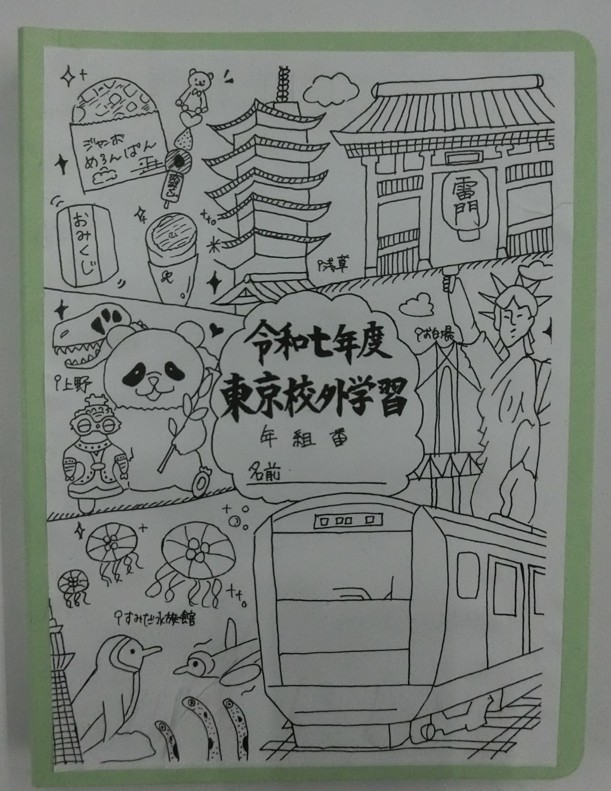 ジャンボ
めろんぱん
おみくじ
雷門
浅草
令和七年度
東京校外学習
年 組 番
名前
上野
お台場
すみだ水族館